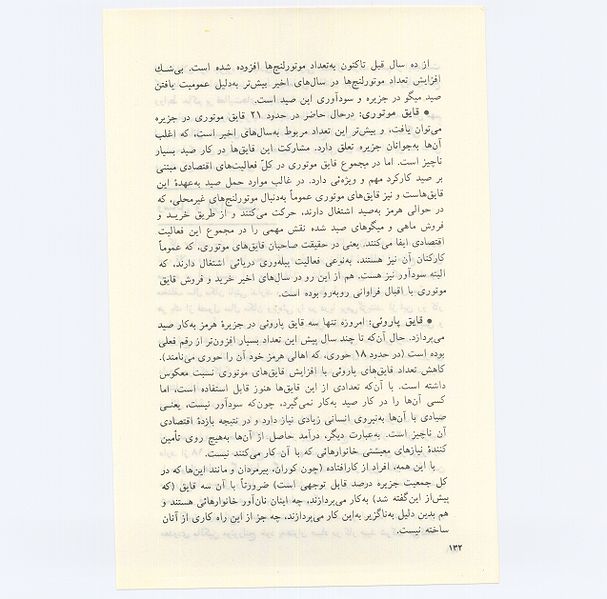 از ده سال قبل تاکنون به‌تعداد موتورلنج‌ها افزوده شده است. بی‌شك
افزایش تعداد موتورلنج‌ها در سال‌های اخیر بیش‌تر به‌دلیل عمومیت یافتن
صید میگو در جزیره و سودآوری این صید است.
● قایق موتوری: درحال حاضر در حدود ۲۱ قایق موتوری در جزیره
می‌توان یافت، و بیش‌تر این تعداد مربوط به‌سال‌های اخیر است، که اغلب
آن‌ها به‌جوانان جزیره تعلق دارد. مشارکت این قایق‌ها در کار صید بسیار
ناچیز است. اما در مجموع قایق موتوری در کلّ فعالیت‌های اقتصادی مبتنی
بر صید کارکرد مهم و ویژه‌ئی دارد. در غالب موارد حمل صید به‌عهدهٔ این
قایق‌هاست و نیز قایق‌های موتوری عموماً به‌دنبال موتورلنج‌های غیرمحلی، که
در حوالی هرمز به‌صید اشتغال دارند، حرکت می‌کنند و از طریق خرید و
فروش ماهی و میگوهای صید شده نقش مهمی را در مجموع این فعالیت
اقتصادی ایفا می‌کنند. یعنی در حقیقت صاحبان قایق‌های موتوری، که عموماً
کارکنان آن نیز هستند، به‌نوعی فعالیت پیله‌وری دریائی اشتغال دارند، که
البته سودآور نیز هست. هم از این رو در سال‌های اخیر خرید و فروش قایق
موتوری با اقبال فراوانی روبه‌رو بوده است.
● قایق پاروئی: امروزه تنها سه قایق پاروئی در جزیرهٔ هرمز به‌کار صید
می‌پردازد. حال آن‌که تا چند سال پیش این تعداد بسیار افزون‌تر از رقم فعلی
بوده است (در حدود ۱۸ حوری، که اهالی هرمز خود آن را حوری می‌نامند).
کاهش تعداد قایق‌های پاروئی با افزایش قایق‌های موتوری نسبت معکوس
داشته است. با آن‌که تعدادی از این قایق‌ها هنوز قابل استفاده است، اما
کسی آن‌ها را در کار صید به‌کار نمی‌گیرد، چون‌که سودآور نیست، یعنی
صیادی با آن‌ها به‌نیروی انسانی زیادی نیاز دارد و در نتیجه بازدهٔ اقتصادی
آن ناچیز است. به‌عبارت دیگر، درآمد حاصل از آن‌ها به‌هیچ روی تأمین
کنندهٔ نیازهای معیشتی خانوارهائی که با آن کار می‌کنند نیست.
با این همه، افراد از کارافتاده (چون کوران، پیرمردان و مانند این‌ها که در
کل جمعیت جزیره درصد قابل توجهی است) ضرورتاً با آن سه قایق (که
پیش‌از این‌گفته شد) به‌کار می‌پردازند، چه اینان نان‌آور خانوارهائی هستند و
هم بدین دلیل به‌ناگزیر به‌این کار می‌پردازند، چه جز از این راه کاری از آنان
ساخته نیست.
۱۳۲